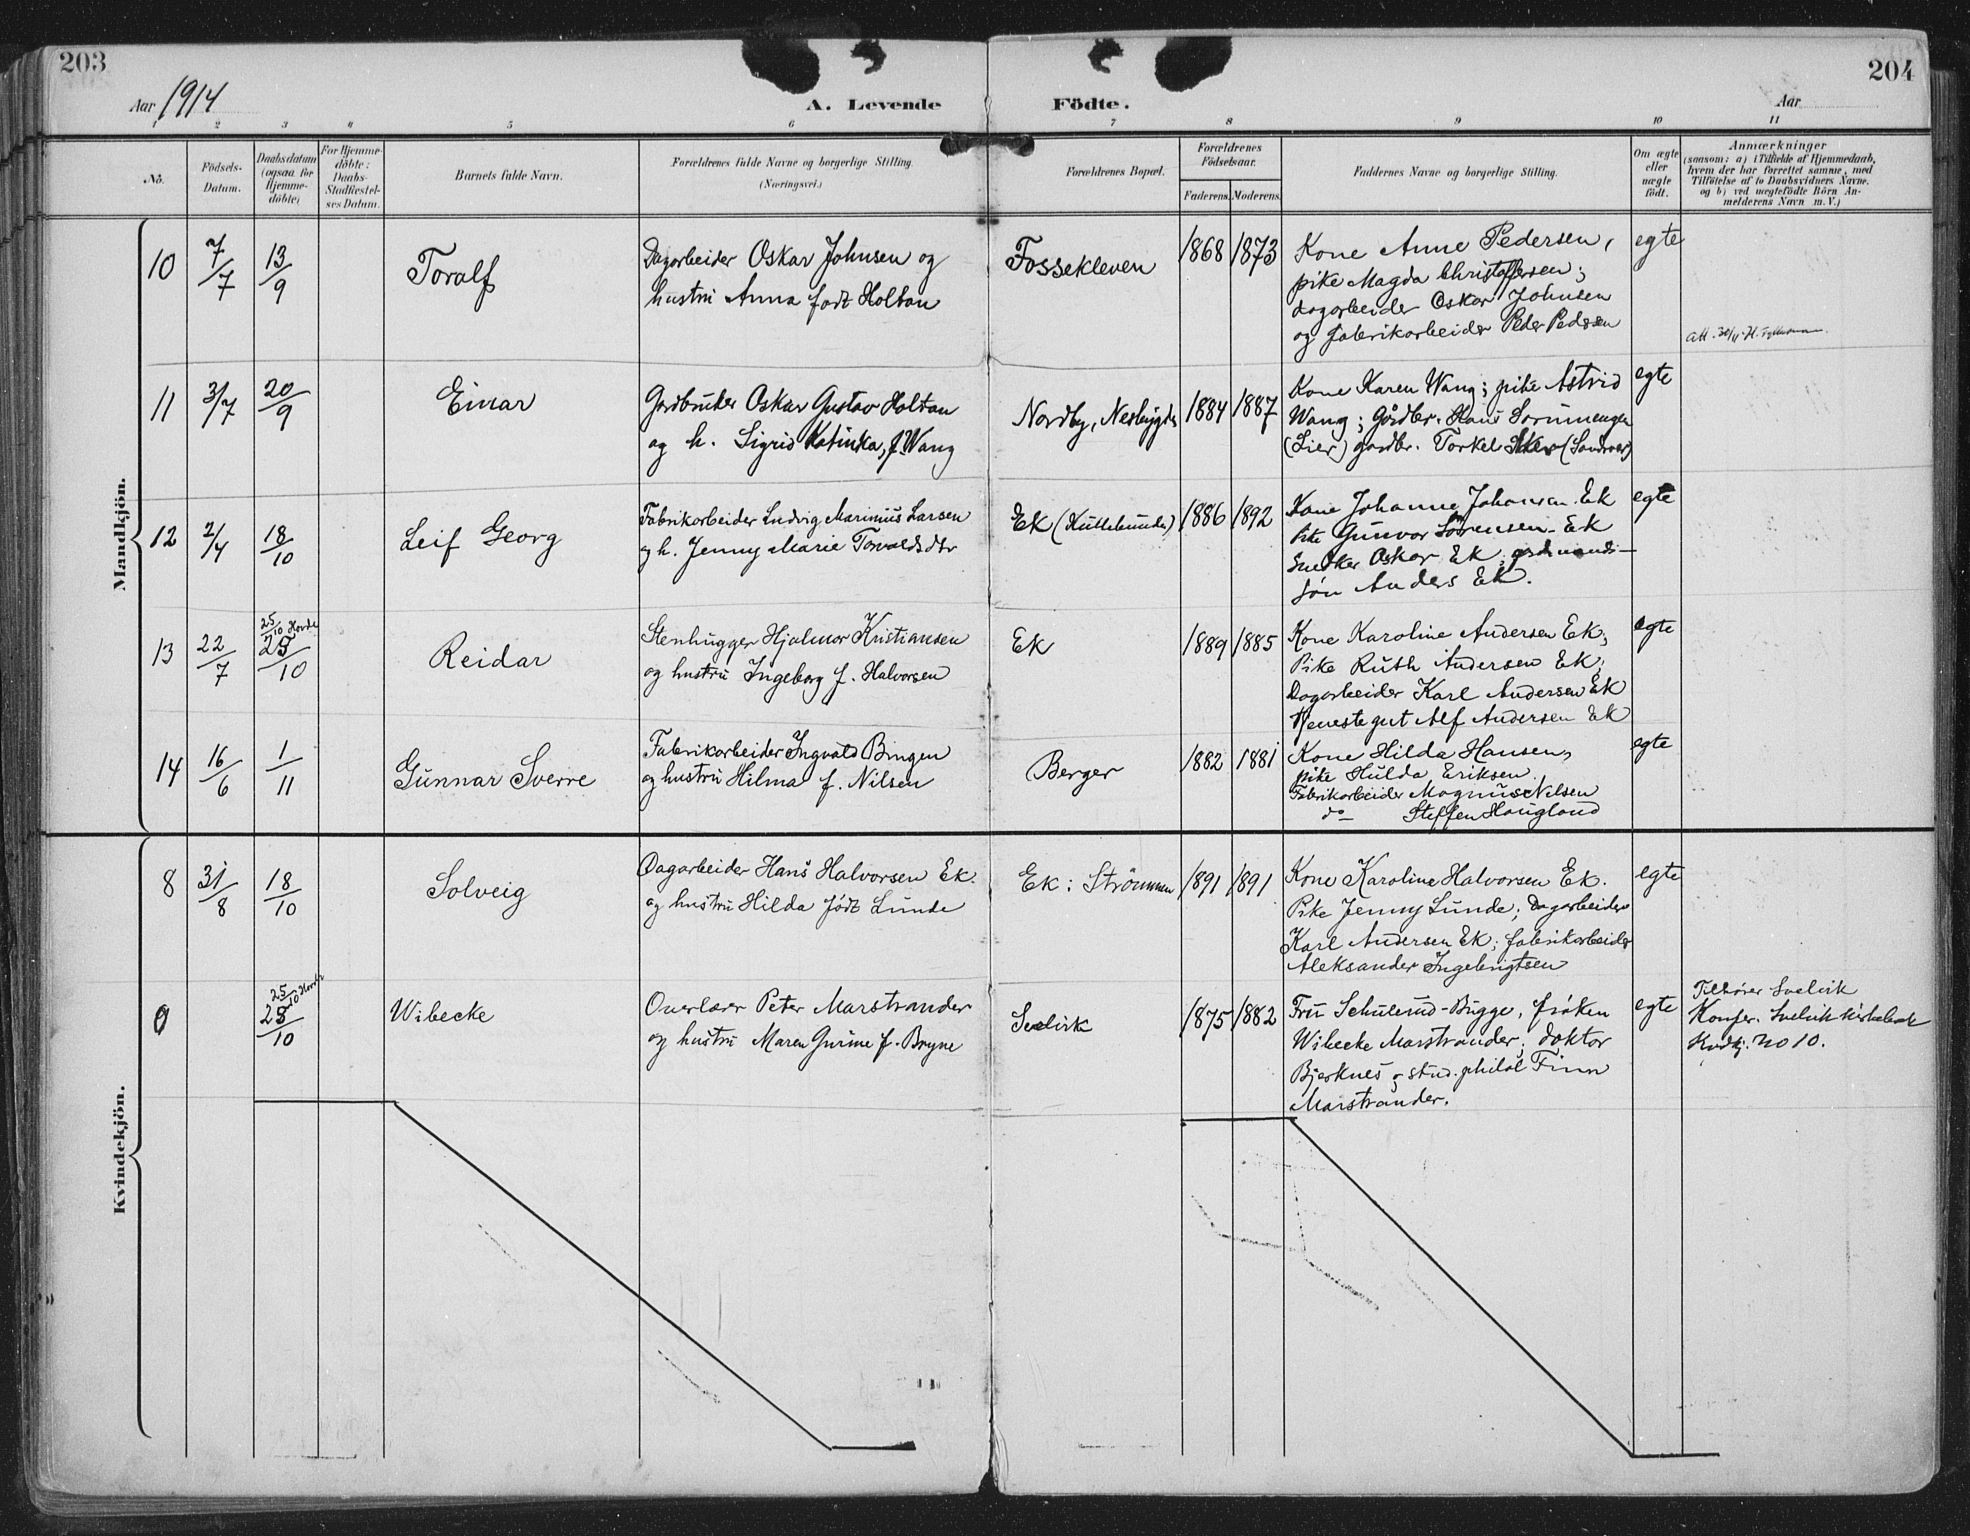 203
204
Aar 1914
A. Levende Födte.
Aar
1 2 3 4 5 6 7 8 9 10 11
No.
Födsels-
Datum.
Daabsdatum
(ogsaa for
Hjemme-
döbte)
For Hjemme-
döbte:
Daabs-
Stadfæstel-
ses Datum.
Barnets fulde Navn.
Forældrenes fulde Navne og borgerlige Stilling.
(Næringsvei.)
Forældrenes Bopæl.
Forældrenes
Födselsaar.
Faderens. Moderens.
Faddernes Navne og borgerlige Stilling.
Om ægte
eller
uægte
födt.
Anmærkninger
(saasom: a) i Tilfælde af Hjemmedaab,
hvem der har forrettet samme, med
Tilföielse af to Daabsvidners Navne.
og b) ved uægtefödte Börn An-
melderens Navn m. V.)
Mandkjön.
10 7/7 13/9 Toralf
Dagarbeider Oskar Johnsen og
hustru Anna født Holtan
Fossekleven 1868 1873
Kone Anne Pedersen,
pike Magda Christoffersen;
dagarbeider Oskar Johnsen
og fabrikarbeider Peder Pedersen
egte
Att. 30/11
11 3/7 20/9 Einar
Gardbruker Oskar Gustav Holtan
og h. Sigrid Katinka, f. Wang
Nordby, Nesbygda 1884 1887
Kone Karen Wang; pike Astrid
Wang; Gårdbr. Hans
(Lier) gardbr. Torkel
egte
12 2/4 18/10 Leif Georg
Fabrikarbeider Ludvig Marinius Larsen
og h. Jenny Marie Torvaldsdtr
Ek 1886 1892
Kone Johanne Johansen Ek
Pike Gunvor Sørensen Ek
Snedker Oskar Ek; gardmands-
søn Anders Ek.
egte
13 22/7 25/10 Hovde
25/10 Reidar
Stenhugger Hjalmar Kristiansen
og hustru Ingeborg f. Halvorsen
Ek 1889 1885
Kone Karoline Andersen Ek;
Pike Ruth Andersen Ek;
Dagarbeider Karl Andersen Ek
Tjenestegut Alf Andersen Ek
egte
14 16/6 1/11 Gunnar Sverre
Fabrikarbeider Ingvald Bingen
og hustru Hilma f. Nilsen
Berger 1882 1881
Kone Hilda Hansen,
pike Hulda Eriksen.
Fabrikarbeider Magnus Nilsen
do Steffen Haugland
egte
Kvindekjön.
8 31/8 18/10 Solveig
Dagarbeider Hans Halvorsen Ek.
og hustru Hilda født Lunde
Ek: Strömmen 1891 1891
Kone Karoline Halvorsen Ek.
Pike Jenny Lunde; Dagarbeider
Karl Andersen Ek; fabrikarbeider
Aleksander Ingebrigtsen
egte
25/10 Hovde
25/10 Wibecke
Overlærer Peter Marstrander
og hustru Maren Gurine f. Bryne
Svelvik 1875 1882
Fru Schulerud-Bugge, frøken
Wibecke Marstrander; doktor
Bjerknes og stud. philol Finn
Marstrander.
egte
Tilhører Svelvik
Konfer. Svelvik kirkebok
Kvdkj. No 10.